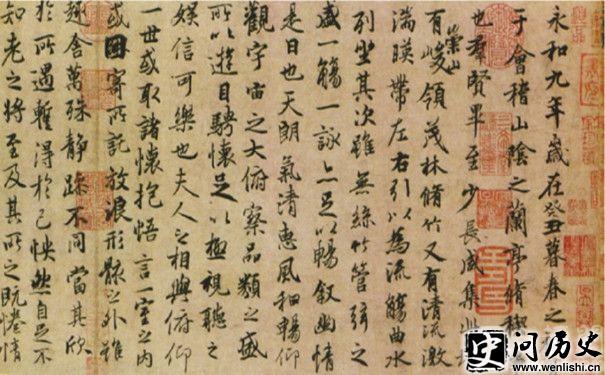 永和九年歲在癸丑暮春之
于會稽山陰之蘭亭脩禊
也羣賢畢至少長咸集此
有崇山峻領茂林脩竹又有清流激
湍暎帶左右引以為流觴曲水
列坐其次雖無絲竹管弦之
盛一觴一詠亦足以暢叙幽情
是日也天朗氣清惠風和暢仰
觀宇宙之大俯察品類之盛
所以遊目騁懷足以極視聽之
娛信可樂也夫人之相與俯仰
一世或取諸懷抱悟言一室之內
或因寄所託放浪形骸之外雖
趣舍萬殊靜躁不同當其欣
於所遇暫得於己怏然自足不
知老之將至及其所之既惓情
史问历史
www.wenlishi.cn